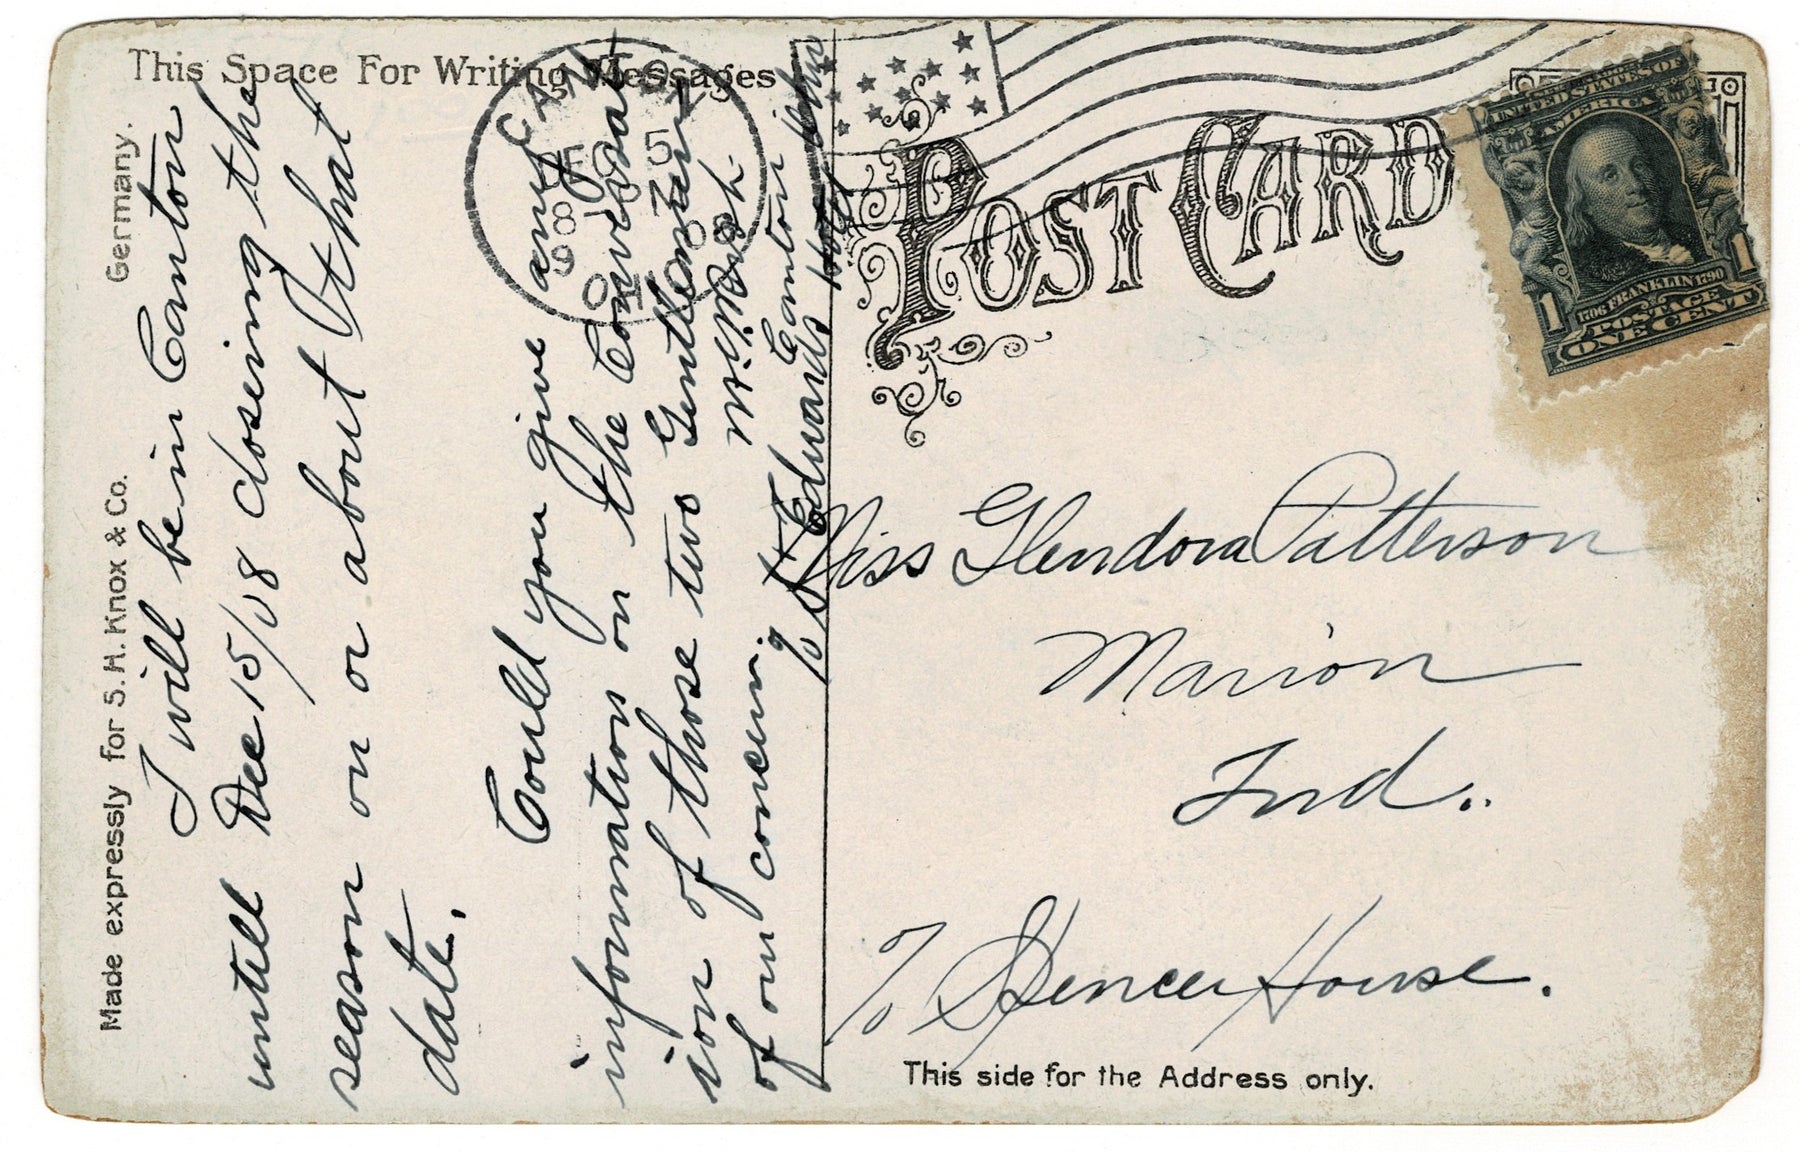 This Space For Writing Messages
Made expressly for S. H. Knox & Co. Germany.
I will be in Canton
untill Dec 15/08 closeing the
season on or about that
date.
Could you give any
information on the Conversat
ion of those two Gentleman
of our concern.
W. M. Rush
% S. F. Edwards Canton
Hotel Ohio
CANTON
5
8
1908
OHIO
POST CARD
UNITED STATES OF
AMERICA
1 1
1706 FRANKLIN 1790
POSTAGE
ONE CENT
Miss Glendora Patterson
Marion
Ind..
% Spencer House.
This side for the Address only.